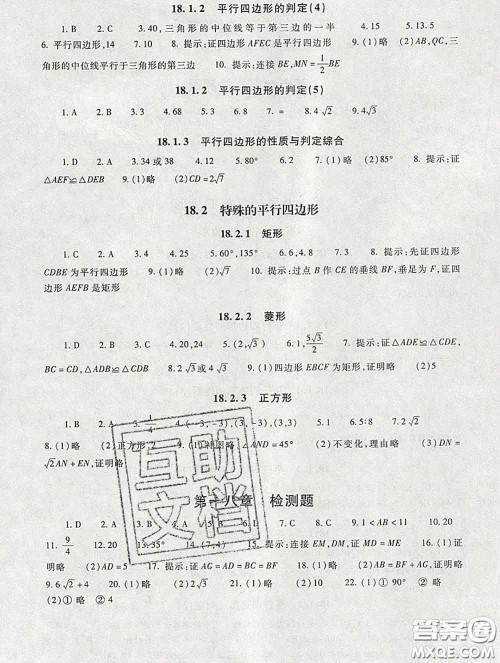 18.1.2 平行四边形的判定(4)
1. B 2. C 3. A 4. 70,三角形的中位线等于第三边的一半 5. 13.5
6. 平行四边形,14 7. 18 8. 提示:证四边形 AFEC 是平行四边形 9. (1)略 (2)AB,QC,三
角形的中位线平行于三角形的第三边 10. 提示:连接 BE,MN=1/2BE
18.1.2 平行四边形的判定(5)
1. A 2. B 3. 4 4. 68 5. 3 6. 9 7. = 8. 4√2 9. 4√3
18.1.3 平行四边形的性质与判定综合
1. D 2. A 3. 34 或 38 4. 12 5. 3 6. 3 7. 150° 8. 提示:证
△AEF≌△DEB 9. (1)略 (2)CD=2√7
18.2 特殊的平行四边形
18.2.1 矩形
1. C 2. A 3. D 4. 25 5. 60°,135° 6. 4 7. 6 8. 提示:先证四边形
CDBE 为平行四边形 9. (1)略 (2)√7 10. 提示:过点 B 作 CE 的垂线 BF,垂足为 F,证四
边形 AEFB 是矩形
18.2.2 菱形
1. D 2. B 3. C 4. 20,24 5. (2,√3) 6. 1,5√3/2 7. 提示:证△ADE≌△CDE,
BC=CD,△ADE≌△CBF 8. 2√3 或 4√3 9. (1)四边形 EBCF 为菱形,证明略 (2)5
18.2.3 正方形
1. D 2. B 3. 1/4 4. (-3,-3),(3,3) 5. 2 6. 5∶8 7. 2√2
8. (1)略 (2)正方形,2 9. (1)补图略,∠AND=45° (2)不变化,理由略 (3)DE=
√2AN+EN,证明略
检测题
1. D 2. B 3. B 4. A 5. B 6. B 7. C 8. C 9. 1<AB<11 10. 20
11. 9/4 12. 20 13. 35° 14. (7,4) 15. 提示:连接 EM,DM,证 MD=ME 16. (1)证
明略 (2)AD=5 17. 提示:证△ABE≌△CDF 18. (1)略 (2)AB=BF+AG,证明略
9. 6√2+4 20. (1)略 (2)2√3 21. (1)略 (2)5 22. (1)① 略 ② 证明略
(2)① 略 ② 4
互助
文档
答案圈
MXQE.COM